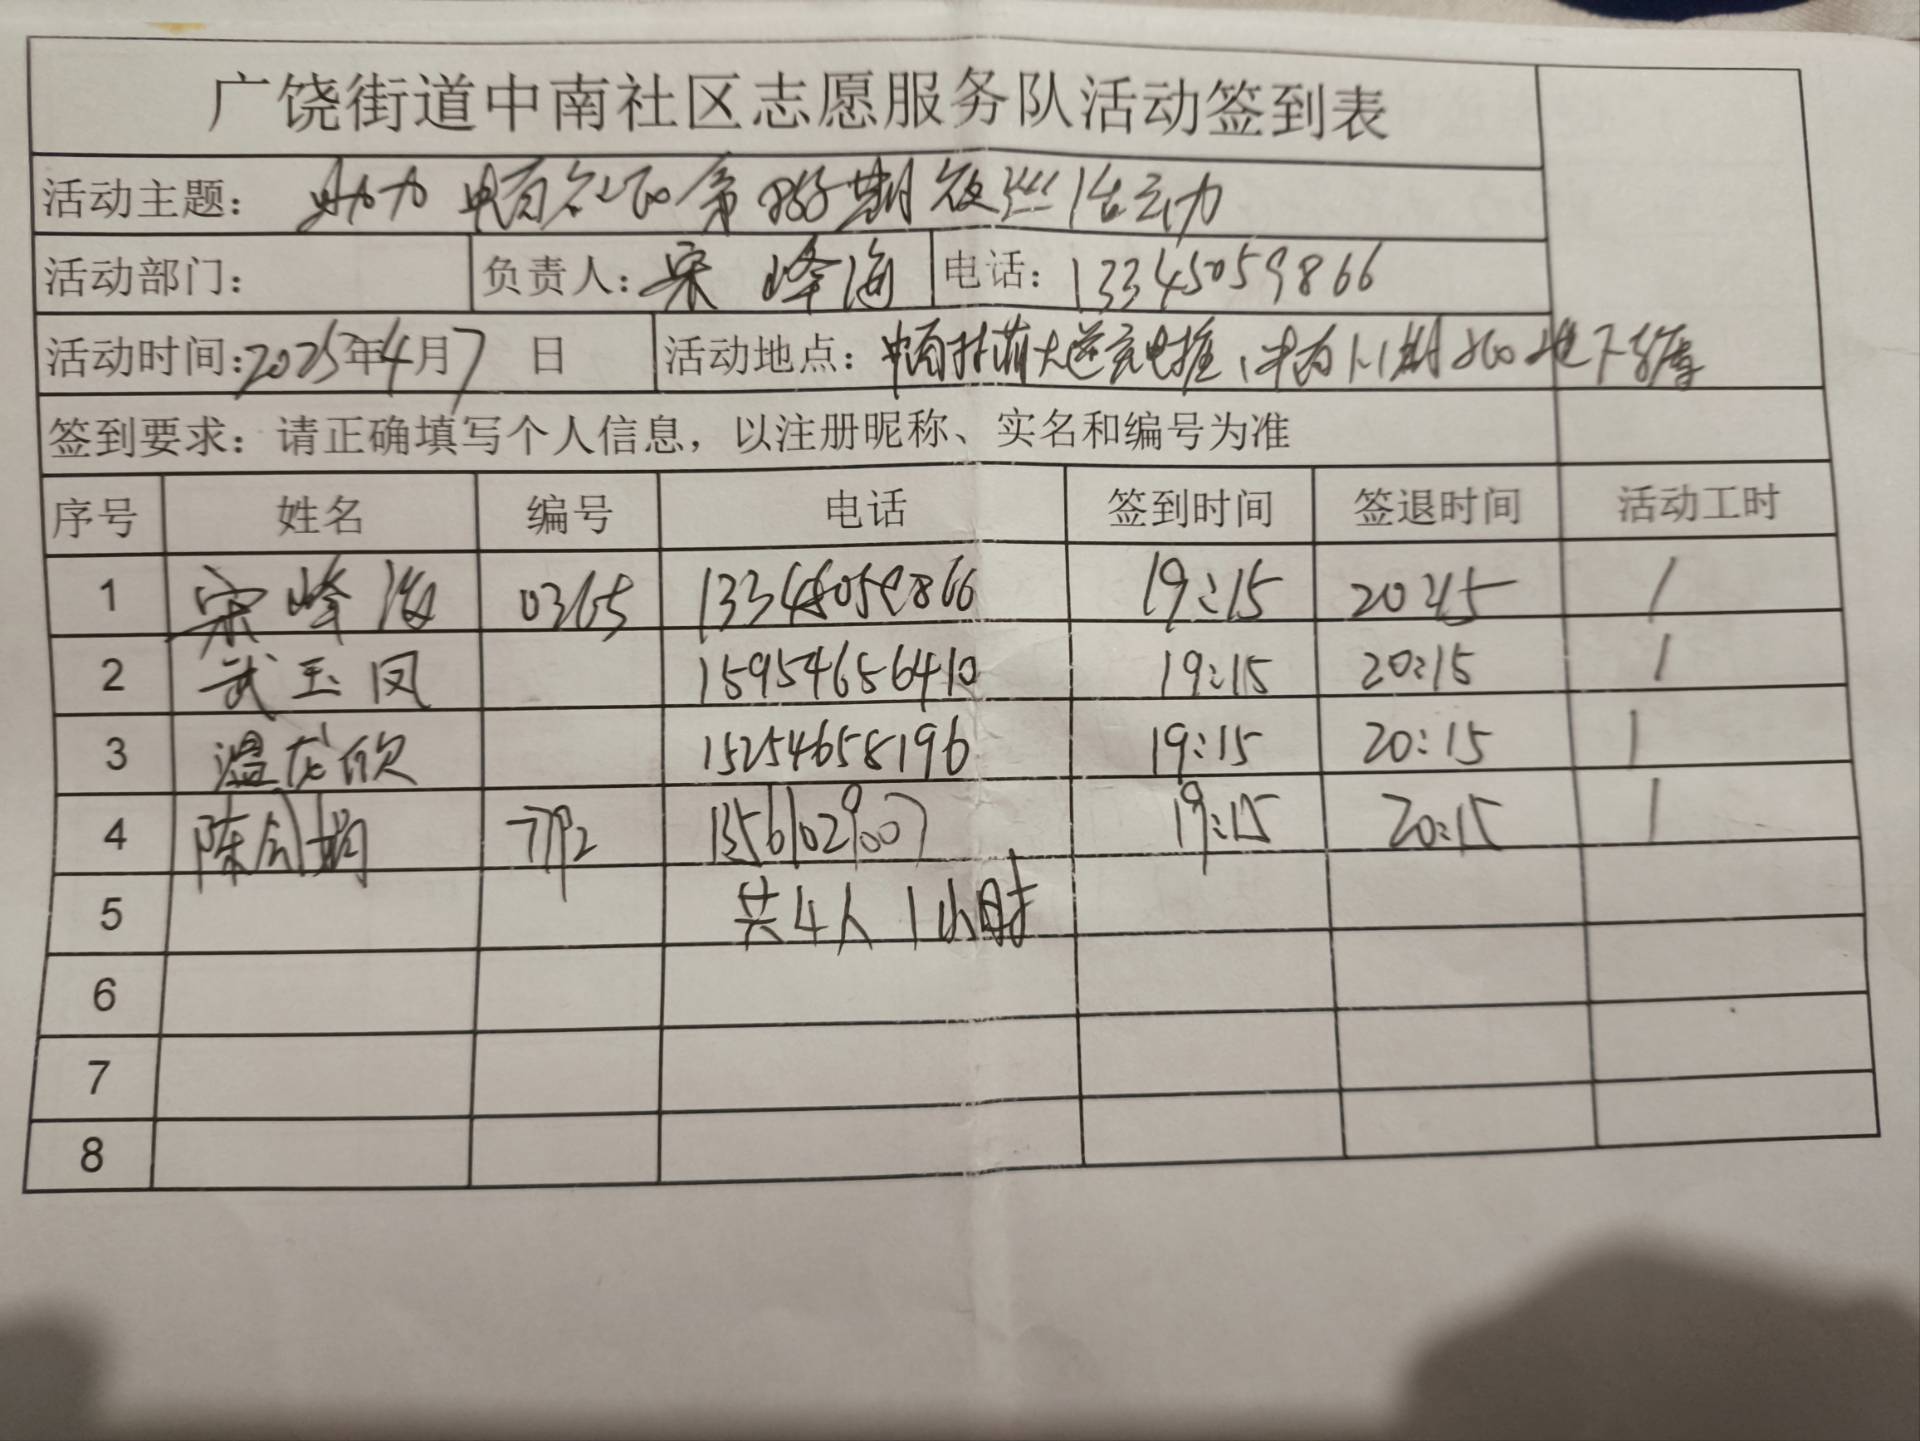 广饶街道中南社区志愿服务队活动签到表
活动主题： 助力 第 期夜巡活动
活动部门： 负责人：宋峰海 电话：13345059866
活动时间：2025年4月7日 活动地点： 大道充电桩、 地下车库
签到要求：请正确填写个人信息，以注册昵称、实名和编号为准
序号 姓名 编号 电话 签到时间 签退时间 活动工时
1 宋峰海 0365 13345059866 19:15 20:15 1
2 武玉凤 15954656410 19:15 20:15 1
3 温龙欣 15254658196 19:15 20:15 1
4 陈 娟 13561029007 19:15 20:15 1
5 共4人1小时
6
7
8